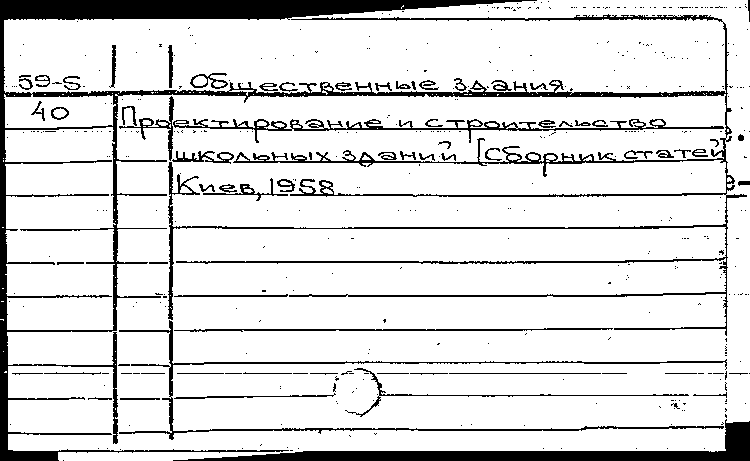 59-5 Общественные здания.
40 Проектирование и строительство
школьных зданий. [Сборник статей]
Киев, 1958.